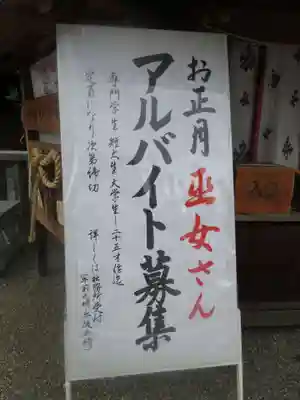 お正月巫女さん
アルバイト募集
専門学生 短大生 大学生 二十五才位迄
定員になり次第締切
詳しくは社務所受付